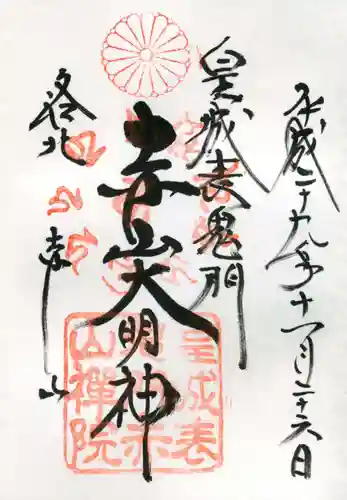 平成二十九年十一月二十六日
皇城表鬼門
赤山大明神
洛北
赤山
皇城表
山禪院